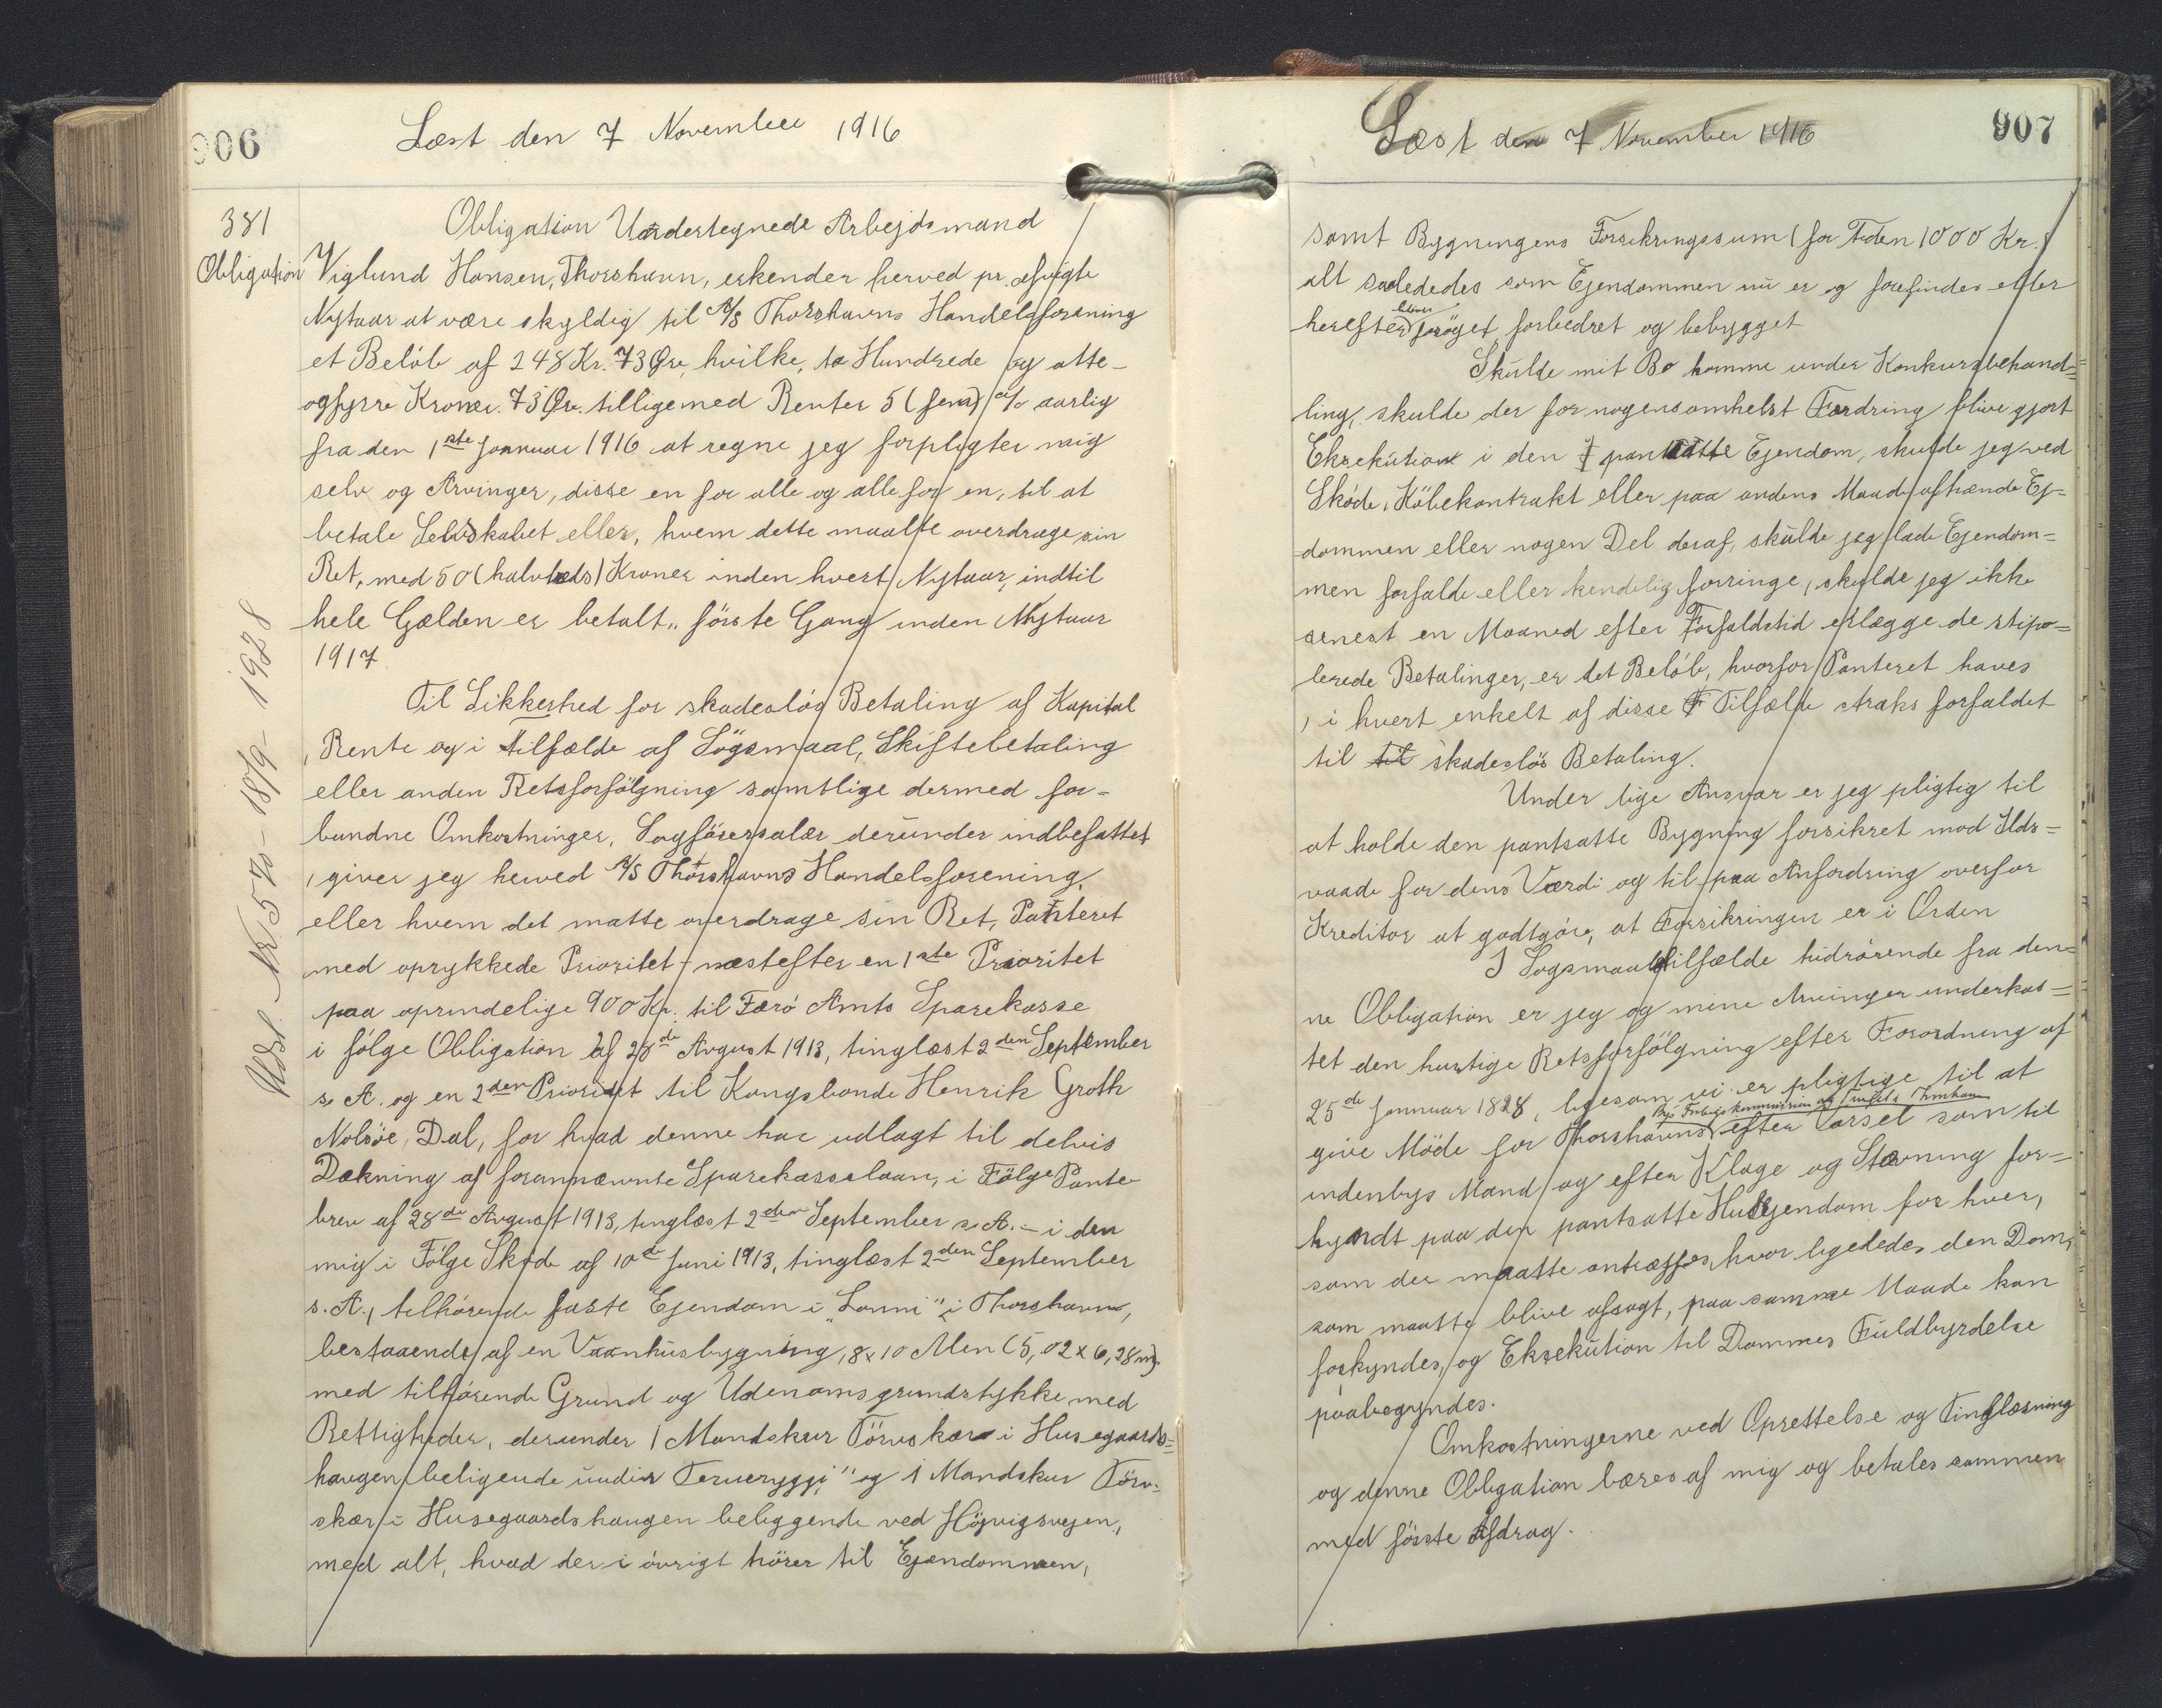 906
Læst den 7 November 1916
381
Obligation
Udsl. Nr 570 - 18/9 - 1928
Obligation Undertegnede Arbejdsmand
Viglund Hansen, Thorshavn, erkender herved pr. afvigte
Nytaar at være skyldig til A/S Thorshavns Handelsforening
et Beløb af 248 Kr. 73 Øre, hvilke, to Hundrede og otte-
ogfyrre Kroner. 73 Øre. tilligemed Renter 5 (fem) o/o aarlig
fra den 1ste Januar 1916 at regne jeg forpligter mig
selv og Arvinger, disse en for alle og alle for en, til at
betale Selvskabet eller, hvem dette maatte overdrage sin
Ret, med 50 (halvtreds) Kroner inden hvert Nytaar, indtil
hele Gælden er betalt, første Gang inden Nytaar
1917.
Til Sikkerhed for skadesløs Betaling af Kapital
, Rente og i Tilfælde af Sögsmaal, Skiftebetaling
eller anden Retsforfölgning samtlige dermed for-
bundne Omkostninger, Sagförersalær derunder indbefattet
, giver jeg herved A/S Thorshavns Handelsforening,
eller hvem det matte overdrage sin Ret, Panteret
med oprykkede Prioritet - næstefter en 1ste Prioritet
paa oprindelige 900 Kr. til Færö Amts Sparekasse
i fölge Obligation af 28de August 1913, tinglæst 2den September
s. A. og en 2den Prioritet til Kongsbonde Henrik Groth
Nolsöe, Dal, for hvad denne har udlagt til delvis
Dækning af forannævnte Sparekasselaan, i Fölge Pante-
brev af 28de August 1913, tinglæst 2den September s. A. - i den
mig i Fölge Sköde af 10de Juni 1913, tinglæst 2den September
s. A., tilhörende faste Ejendom i "Lonni" i Thorshavn,
bestaaende af en Vaanhusbygning, 8 x 10 Alen (5,02 x 6,28 m),
med tilhörende Grund og Udenomsgrundstykke med
Rettigheder, derunder 1 Mandskur Törvskær i Husegaards-
haugen beligende undir Terueryggi" og 1 Mandskur Törv-
skær i Husegaardshaugen beliggende ved Höjvigsvejen,
med alt, hvad der i övrigt hörer til Ejendommen,
Læst den 7 November 1916
907
samt Bygningens Forsikringssum (for Tiden 1000 Kr.)
alt saaledes som Ejendommen nu er og forefindes eller
herefter bliver foröget, forbedret og bebygget
Skulde mit Bo komme under Konkursbehand=
ling, skulde der for nogensomhelst Fordring blive gjort
Eksekution i den pantsatte Ejendom, skulde jeg ved
Sköde, Köbekontrakt eller paa andens Maade afhænde Ej=
dommen eller nogen Del deraf, skulde jeg lade Ejendom=
men forfalde eller kendelig forringe, skulde jeg ikke
senest en Maaned efter Forfaldstid erlægge de stipu=
lerede Betalinger, er det Beløb, hvorfor Panteret haves
, i hvert enkelt af disse Tilfælde straks forfaldet
til til skadeslös Betaling.
Under lige Ansvar er jeg pligtig til
at holde den pantsatte Bygning forsikret mod Ilds=
vaade for dens Værdi og til paa Anfordring overfor
Kreditor at godtgöre, at Forsikringen er i Orden
I Sogsmaalstilfælde hidrörende fra den=
ne Obligation er jeg og mine Arvinger underkas=
tet den hurtige Retsforfölgning efter Forordning af
25de Januar 1828, ligesom vi er pligtige til at
give Möde for Thorshavns efter Varsel som til
indenbys Mand og efter Klage og Stævning for=
kyndt paa den pantsatte Husejendom for hver,
som der maatte antræffes, hvor ligeledes den Dom,
som maatte blive afsagt, paa samme Maade kan
forkyndes, og Eksekution til Dommes Fuldbyrdelse
paabegyndes.
Omkostningerne ved Oprettelse og Tinglæsning
og denne Obligation bæres af mig og betales sammen
med förste Afdrag.